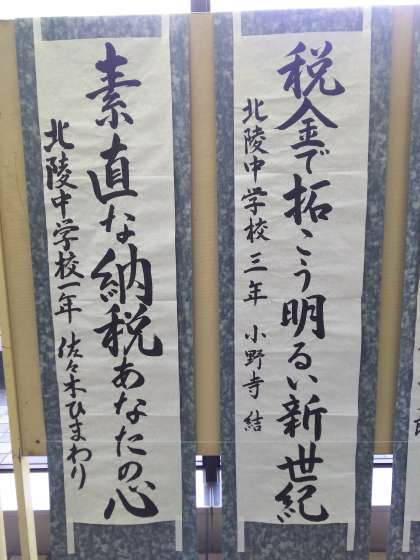 税金で拓こう明るい新世紀
北陵中学校三年 小野寺 結
素直な納税あなたの心
北陵中学校一年 佐々木ひまわり